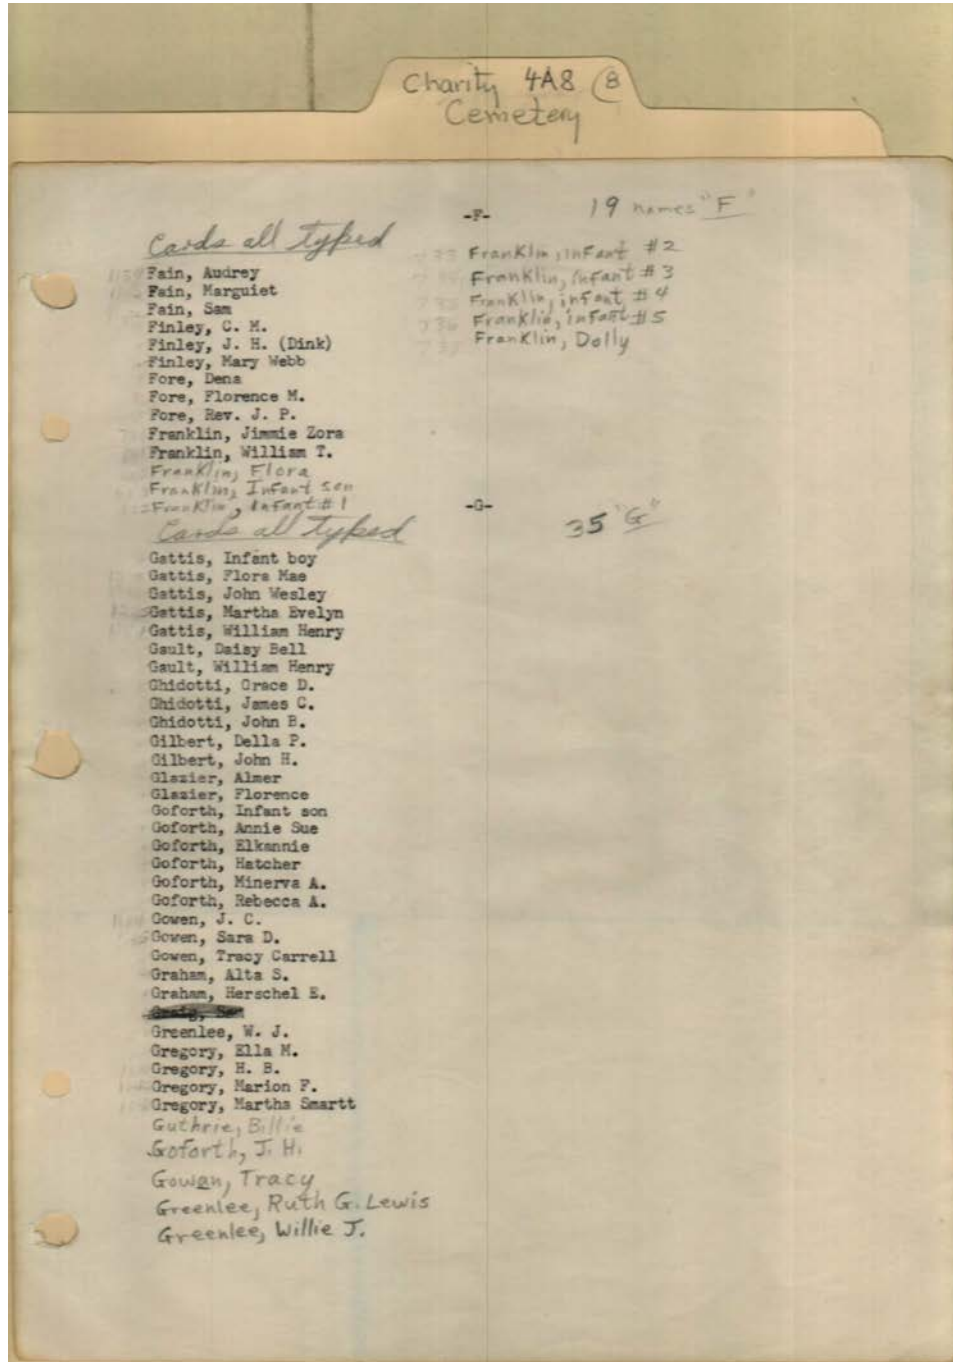 Charity 4A8 (8
Cemetery
-F-
19 names "F"
Cards all typed
Fain, Audrey
Fain, Marguiet
Fain, Sam
Finley, C. M.
Finley, J. H. (Dink)
Finley, Mary Webb
Fore, Dena
Fore, Florence M.
Fore, Rev. J. P.
Franklin, Jimmie Zora
Franklin, William T.
Franklin, Flora
Franklin, Infant son
Franklin, infant #1
Franklin, infant #2
Franklin, infant #3
Franklin, infant #4
Franklin, infant #5
Franklin, Dolly
-G-
35 "G"
Cards all typed
Gattis, Infant boy
Gattis, Flora Mae
Gattis, John Wesley
Gattis, Martha Evelyn
Gattis, William Henry
Gault, Daisy Bell
Gault, William Henry
Ghidotti, Grace D.
Ghidotti, James C.
Ghidotti, John B.
Gilbert, Della P.
Gilbert, John H.
Glazier, Almer
Glazier, Florence
Goforth, Infant son
Goforth, Annie Sue
Goforth, Elkannie
Goforth, Hatcher
Goforth, Minerva A.
Goforth, Rebecca A.
Gowen, J. C.
Gowen, Sara D.
Gowen, Tracy Carrell
Graham, Alta S.
Graham, Herschel E.
Greenlee, W. J.
Gregory, Ella M.
Gregory, H. B.
Gregory, Marion F.
Gregory, Martha Smartt
Guthrie, Billie
Goforth, J. H.
Gowan, Tracy
Greenlee, Ruth G. Lewis
Greenlee, Willie J.